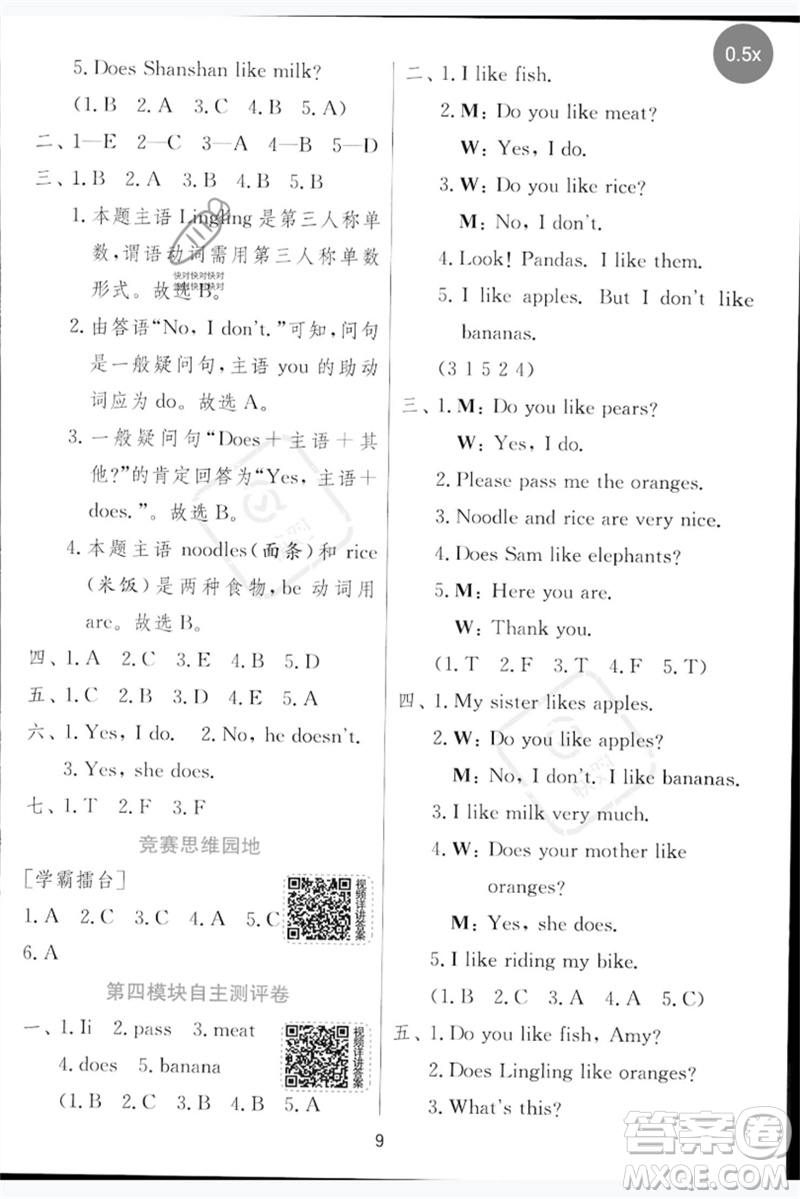 0.5x
5. Does Shanshan like milk?
(1. B 2. A 3. C 4. B 5. A)
二、1—E 2—C 3—A 4—B 5—D
三、1. B 2. A 3. B 4. B
1. 本题主语 Lingling 是第三人称单
数，谓语动词需用第三人称单数
形式。故选 B。
2. 由答语“No, I don't.”可知，问句
是一般疑问句，主语 you 的助动
词应为 do。故选 A。
3. 一般疑问句“Does＋主语＋其
他?”的肯定回答为“Yes, 主语＋
does.”。故选 B。
4. 本题主语 noodles(面条)和 rice
(米饭)是两种食物，be 动词用
are。故选 B。
四、1. A 2. C 3. E 4. B 5. D
五、1. B 2. C 3. D 4. E 5. A
六、1. Yes, I do. 2. No, he doesn't.
3. Yes, she does.
七、1. T 2. F 3. F
竞赛思维园地
[学霸擂台]
1. A 2. C 3. C 4. A 5. C
6. A
视频详讲答案
第四模块自主测评卷
一、1. Ii 2. pass 3. meat
4. does 5. banana
(1. B 2. C 3. B 4. B 5. A
视频详讲答案
二、1. I like fish.
2. M: Do you like meat?
W: Yes, I do.
3. W: Do you like rice?
M: No, I don't.
4. Look! Pandas. I like them.
5. I like apples. But I don't like
bananas.
(3 1 5 2 4)
三、1. M: Do you like pears?
W: Yes, I do.
2. Please pass me the oranges.
3. Noodle and rice are very nice.
4. Does Sam like elephants?
5. M: Here you are.
W: Thank you.
(1. T 2. F 3. T 4. F 5. T)
四、1. My sister likes apples.
2. W: Do you like apples?
M: No, I don't. I like bananas.
3. I like milk very much.
4. W: Does your mother like
oranges?
M: Yes, she does.
5. I like riding my bike.
(1. B 2. C 3. A 4. B 5. C)
五、1. Do you like fish, Amy?
2. Does Lingling like oranges?
3. What's this?
9
快对快对快对
快对快对快对
快对
答案圈
MXQE.COM